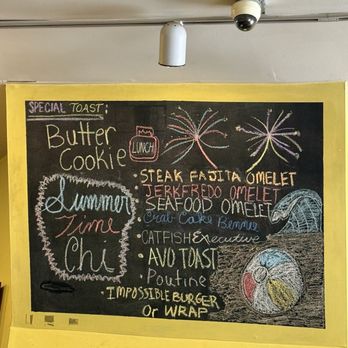 SPECIAL TOAST:
Butter
Cookie
LUNCH
Summer
Time
Chi
• STEAK FAJITA OMELET
JERKFREDO OMELET
SEAFOOD OMELET
Crab Cake Bennie
• CATFISH Executive
• AVO TOAST
• Poutine
• IMPOSSIBLE BURGER
Or WRAP